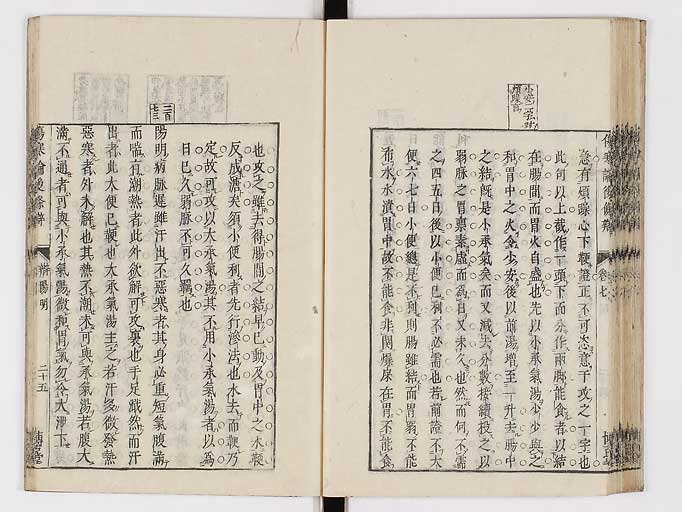 意有煩躁心下鞕證正不可恣意于攻之一字也
此句以上截作一頭下而分作兩脚能食者以結
在腸間而胃火自盛也先以小承氣湯少少與之
和胃中之火令少安後以前湯增至一升去腸中
之結既是小承氣矣而又減去分數接續投之以
弱脉之胃稟素虛而為日又未久也然而何不需
之四五日後以小便已利不必需也若前證不大
便六七日小便總是不利則腸雖結而胃弱不能
水水漬胃中故不能食非關燥屎在胃不能食
傷寒論後條辨
卷七
也攻之雖去得腸間之結早已動及胃中之水鞕
反成溏矣須小便利者先行滲法也水去而鞕乃
定故可攻以大承氣湯其不用小承氣湯者以為
日已久弱脉不可久羈也
三百
陽明病脉遲雖汗出不惡寒者其身必重短氣腹滿
而喘有潮熱者此外欲解可攻裏也手足濈然而汗
出者此大便已鞕也大承氣湯主之若汗多微發熱
惡寒者外未解也其熱不潮未可與承氣湯若腹大
滿不通者可與小承氣湯微和胃氣勿令大泄下
傷寒論後條辨
辨陽明
二十五